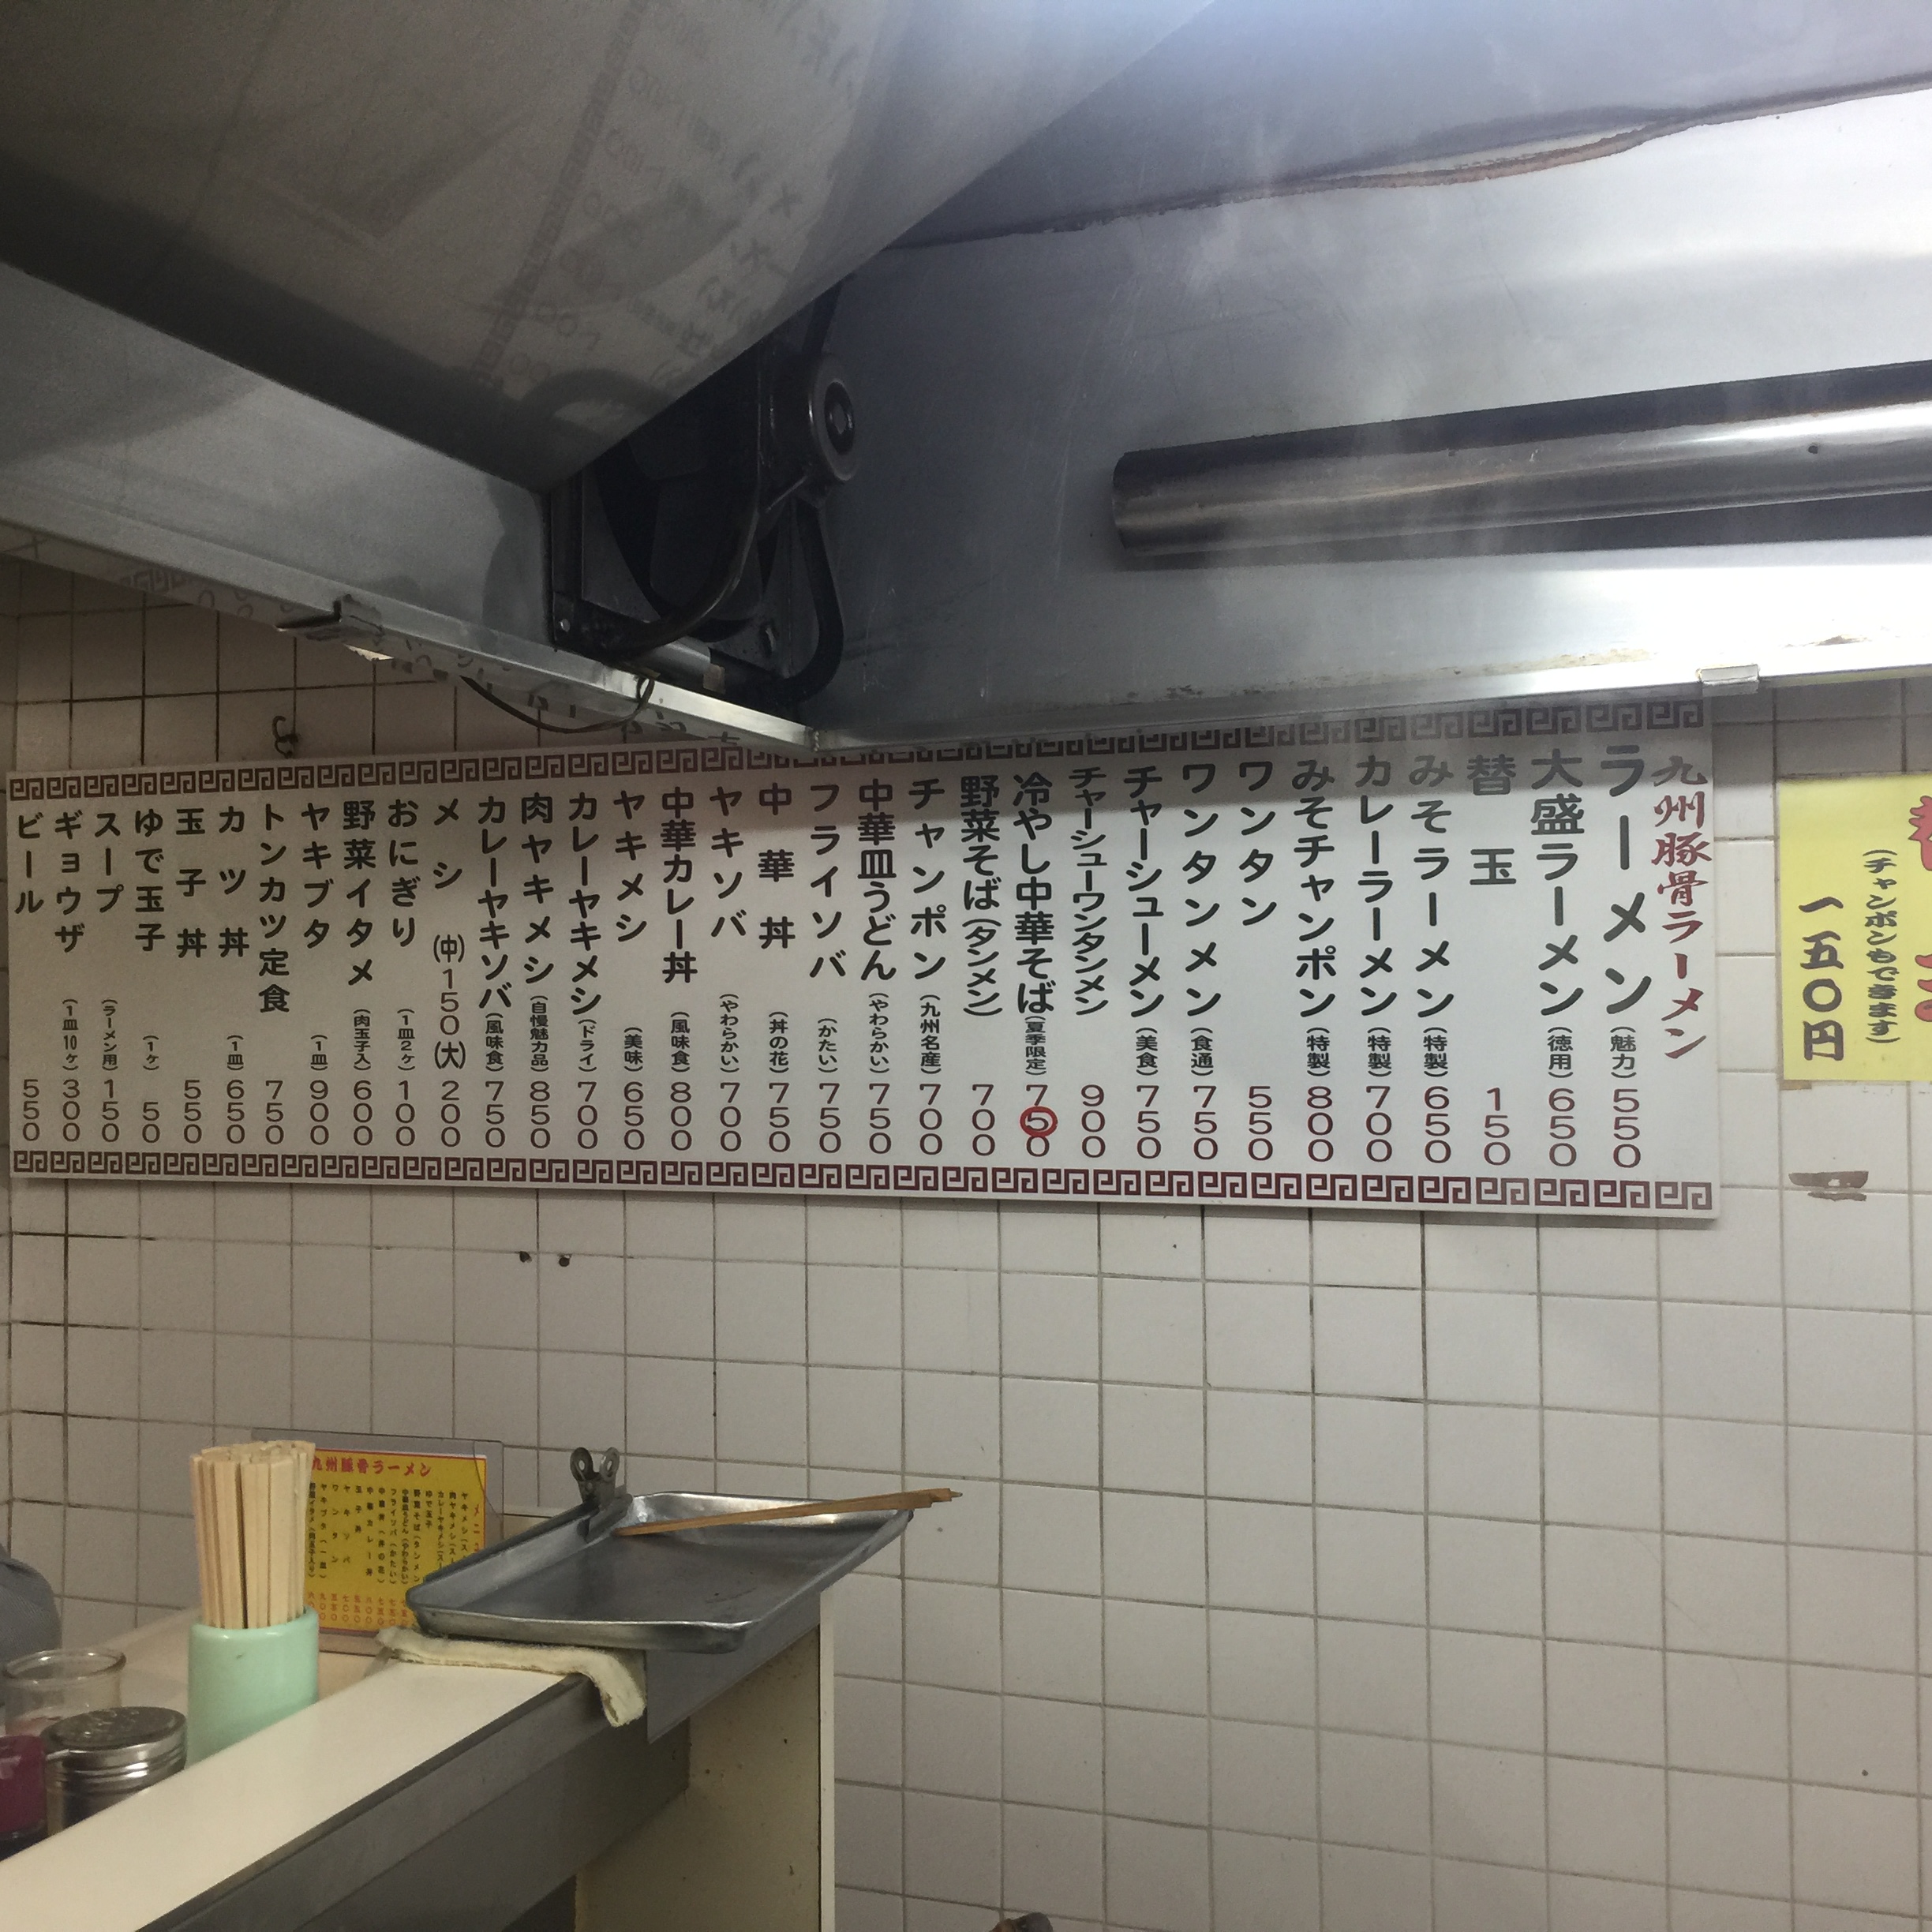 九州豚骨ラーメン
ラーメン(魅力)550
大盛ラーメン(徳用)650
替玉150
みそラーメン(特製)650
カレーラーメン(特製)700
みそチャンポン(特製)800
ワンタン550
ワンタンメン(食通)750
チャーシューメン(美食)750
チャーシューワンタンメン900
冷やし中華そば(夏季限定)750
野菜そば(タンメン)700
チャンポン(九州名産)700
中華皿うどん(やわらかい)750
フライソバ(かたい)750
中華丼(丼の花)750
ヤキソバ(やわらかい)700
中華カレー丼(風味食)800
ヤキメシ(美味)650
カレーヤキメシ(ドライ)700
肉ヤキメシ(自慢魅力品)850
カレーヤキソバ(風味食)750
メシ(中)150(大)200
おにぎり(1皿2ヶ)100
野菜イタメ(肉玉子入)600
ヤキブタ(1皿)900
トンカツ定食750
カツ丼(1皿)650
玉子丼550
ゆで玉子(1ヶ)50
スープ(ラーメン用)150
ギョウザ(1皿10ヶ)300
ビール550
(チャンポンもできます)
一五〇円
九州豚骨ラーメン